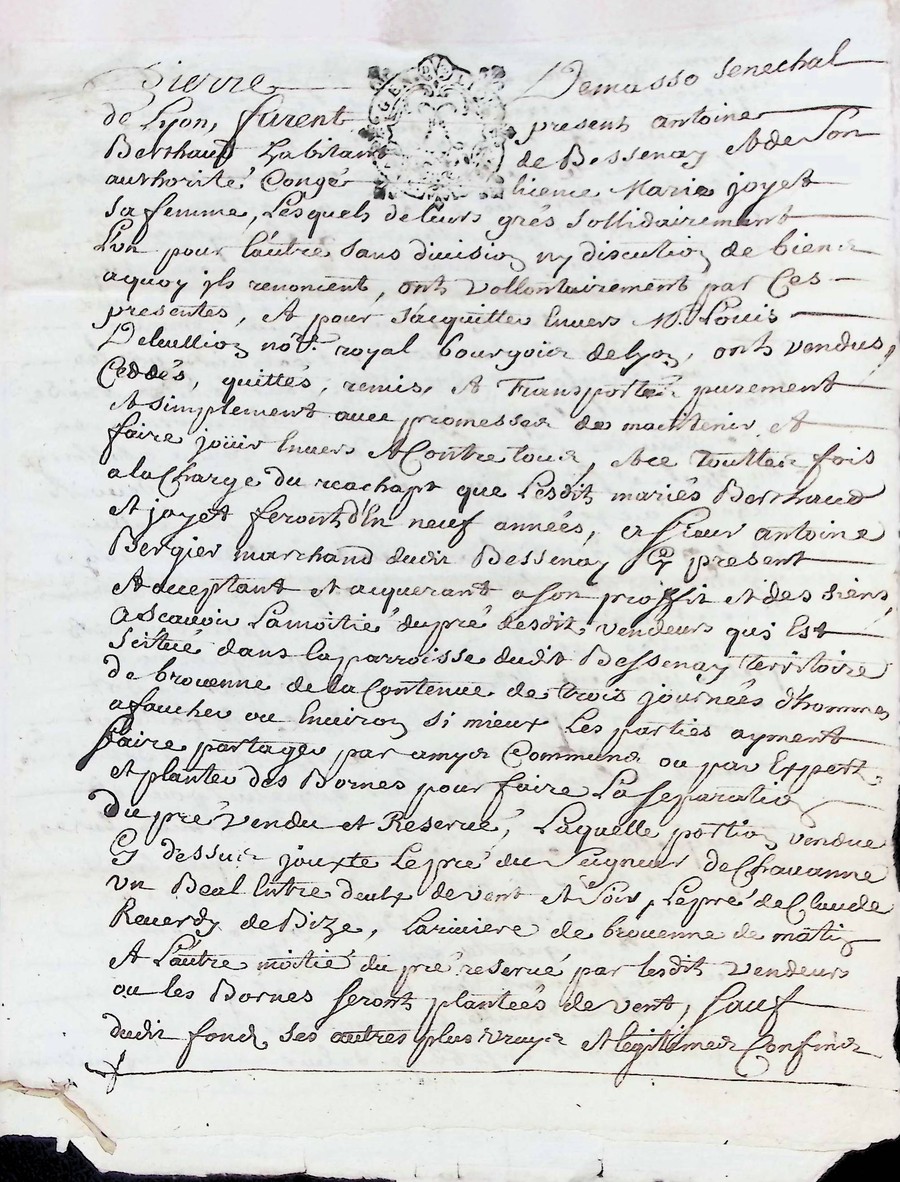 Pierre Demasso senechal
de Lyon, furent present antoine
Berthaud habitant de Bessenay et de son
authorité Congé licence Marie joyet
sa femme, Lesquels de leurs grés sollidairement
L'un pour l'autre sans division ny discution de biens
aquoy ils renoncent, ont vollontairement par Ces
presentes, et pour s'acquitter Envers Mr. Louis
Delullion not. royal bourgois de lyon, ont vendus,
Ceddés, quittés, remis, et Transportés purement
et simplement avec promesses de maintenir et
faire jouir Envers et Contre tous, et ce touttes fois
a la Charge du reachapt que lesdit mariés Berthaud
et joyet feront d'En neuf années, a sieur antoine
Bergier marchand dudit Bessenay Cy present
et acceptant et acquerant a son proffit et des siens,
a scavoir La moitié du pré desdit, vendeurs qui Est
scittué dans la parroisse dudit Bessenay territoire
de brouenne de la Contenue de trois journées d'hommes
a faucher ou Environ si mieux Les parties ayment
faire partager par amys Communs ou par Expert,
et planter des Bornes pour faire La separation
du pré vendu et Reservé, Laquelle portion vendue
Cy dessus jouxte Le pré du seigneur de Chavanne
un Beal Entre deux de vent et soir, Le pré de Claude
Reverdy de Bize, La riviere de brouenne de matin
et L'autre moitié du pré reservé par lesdit vendeurs
ou les Bornes seront plantées de vent, sauf
dudit fond ses autres plus vrays et legitimes Confins